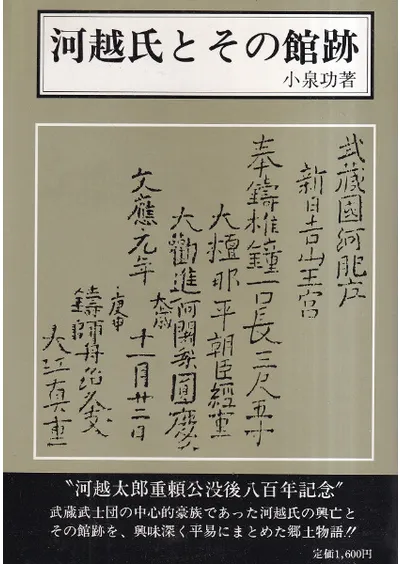 河越氏とその館跡
小泉功著
武蔵國河肥庄
新日吉山王宮
奉鑄椎鐘一口長三尺五寸
大檀那平朝臣經重
大勸進阿闍梨圓慶
文應元年大歳庚申十一月廿二日
鑄師丹治久友
大江真重
〝河越太郎重頼公没後八百年記念〟
武蔵武士団の中心的豪族であった河越氏の興亡と
その館跡を、興味深く平易にまとめた郷土物語!!
定価1,600円